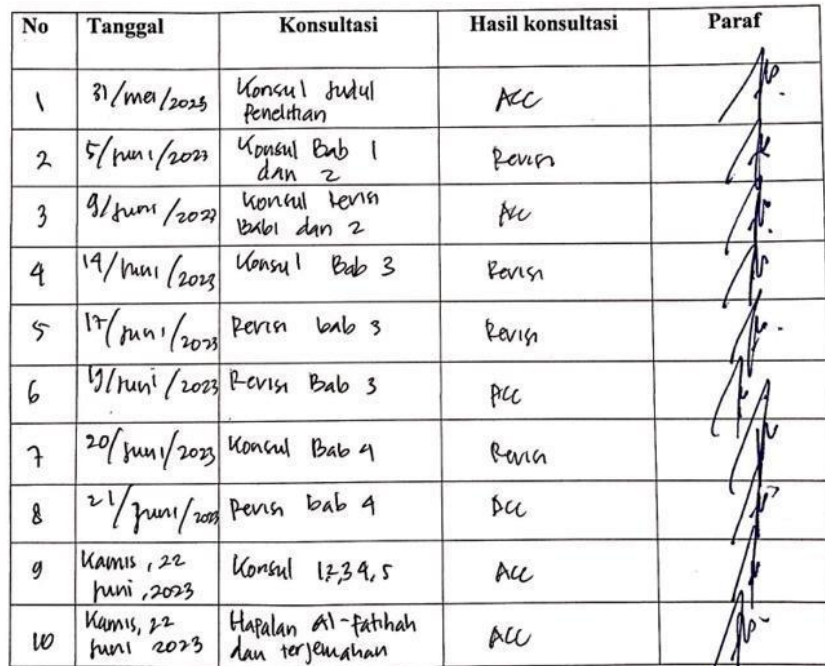 No Tanggal Konsultasi Hasil konsultasi Paraf
1 31/mei/2023 Konsul Judul ACC
Penelitian
2 5/juni/2023 Konsul Bab 1 Revisi
dan 2
3 9/juni/2023 Konsul revisi Acc
Bab1 dan 2
4 14/juni/2023 Konsul Bab 3 Revisi
5 17/juni/2023 Revisi bab 3 Revisi
6 19/juni/2023 Revisi Bab 3 ACC
7 20/juni/2023 Konsul Bab 4 Revisi
8 21/juni/2023 Revisi bab 4 ACC
9 Kamis, 22 Konsul 1,2,3,4,5 ACC
juni, 2023
10 Kamis, 22 Hapalan Al-fatihah ACC
juni 2023 dan terjemahan